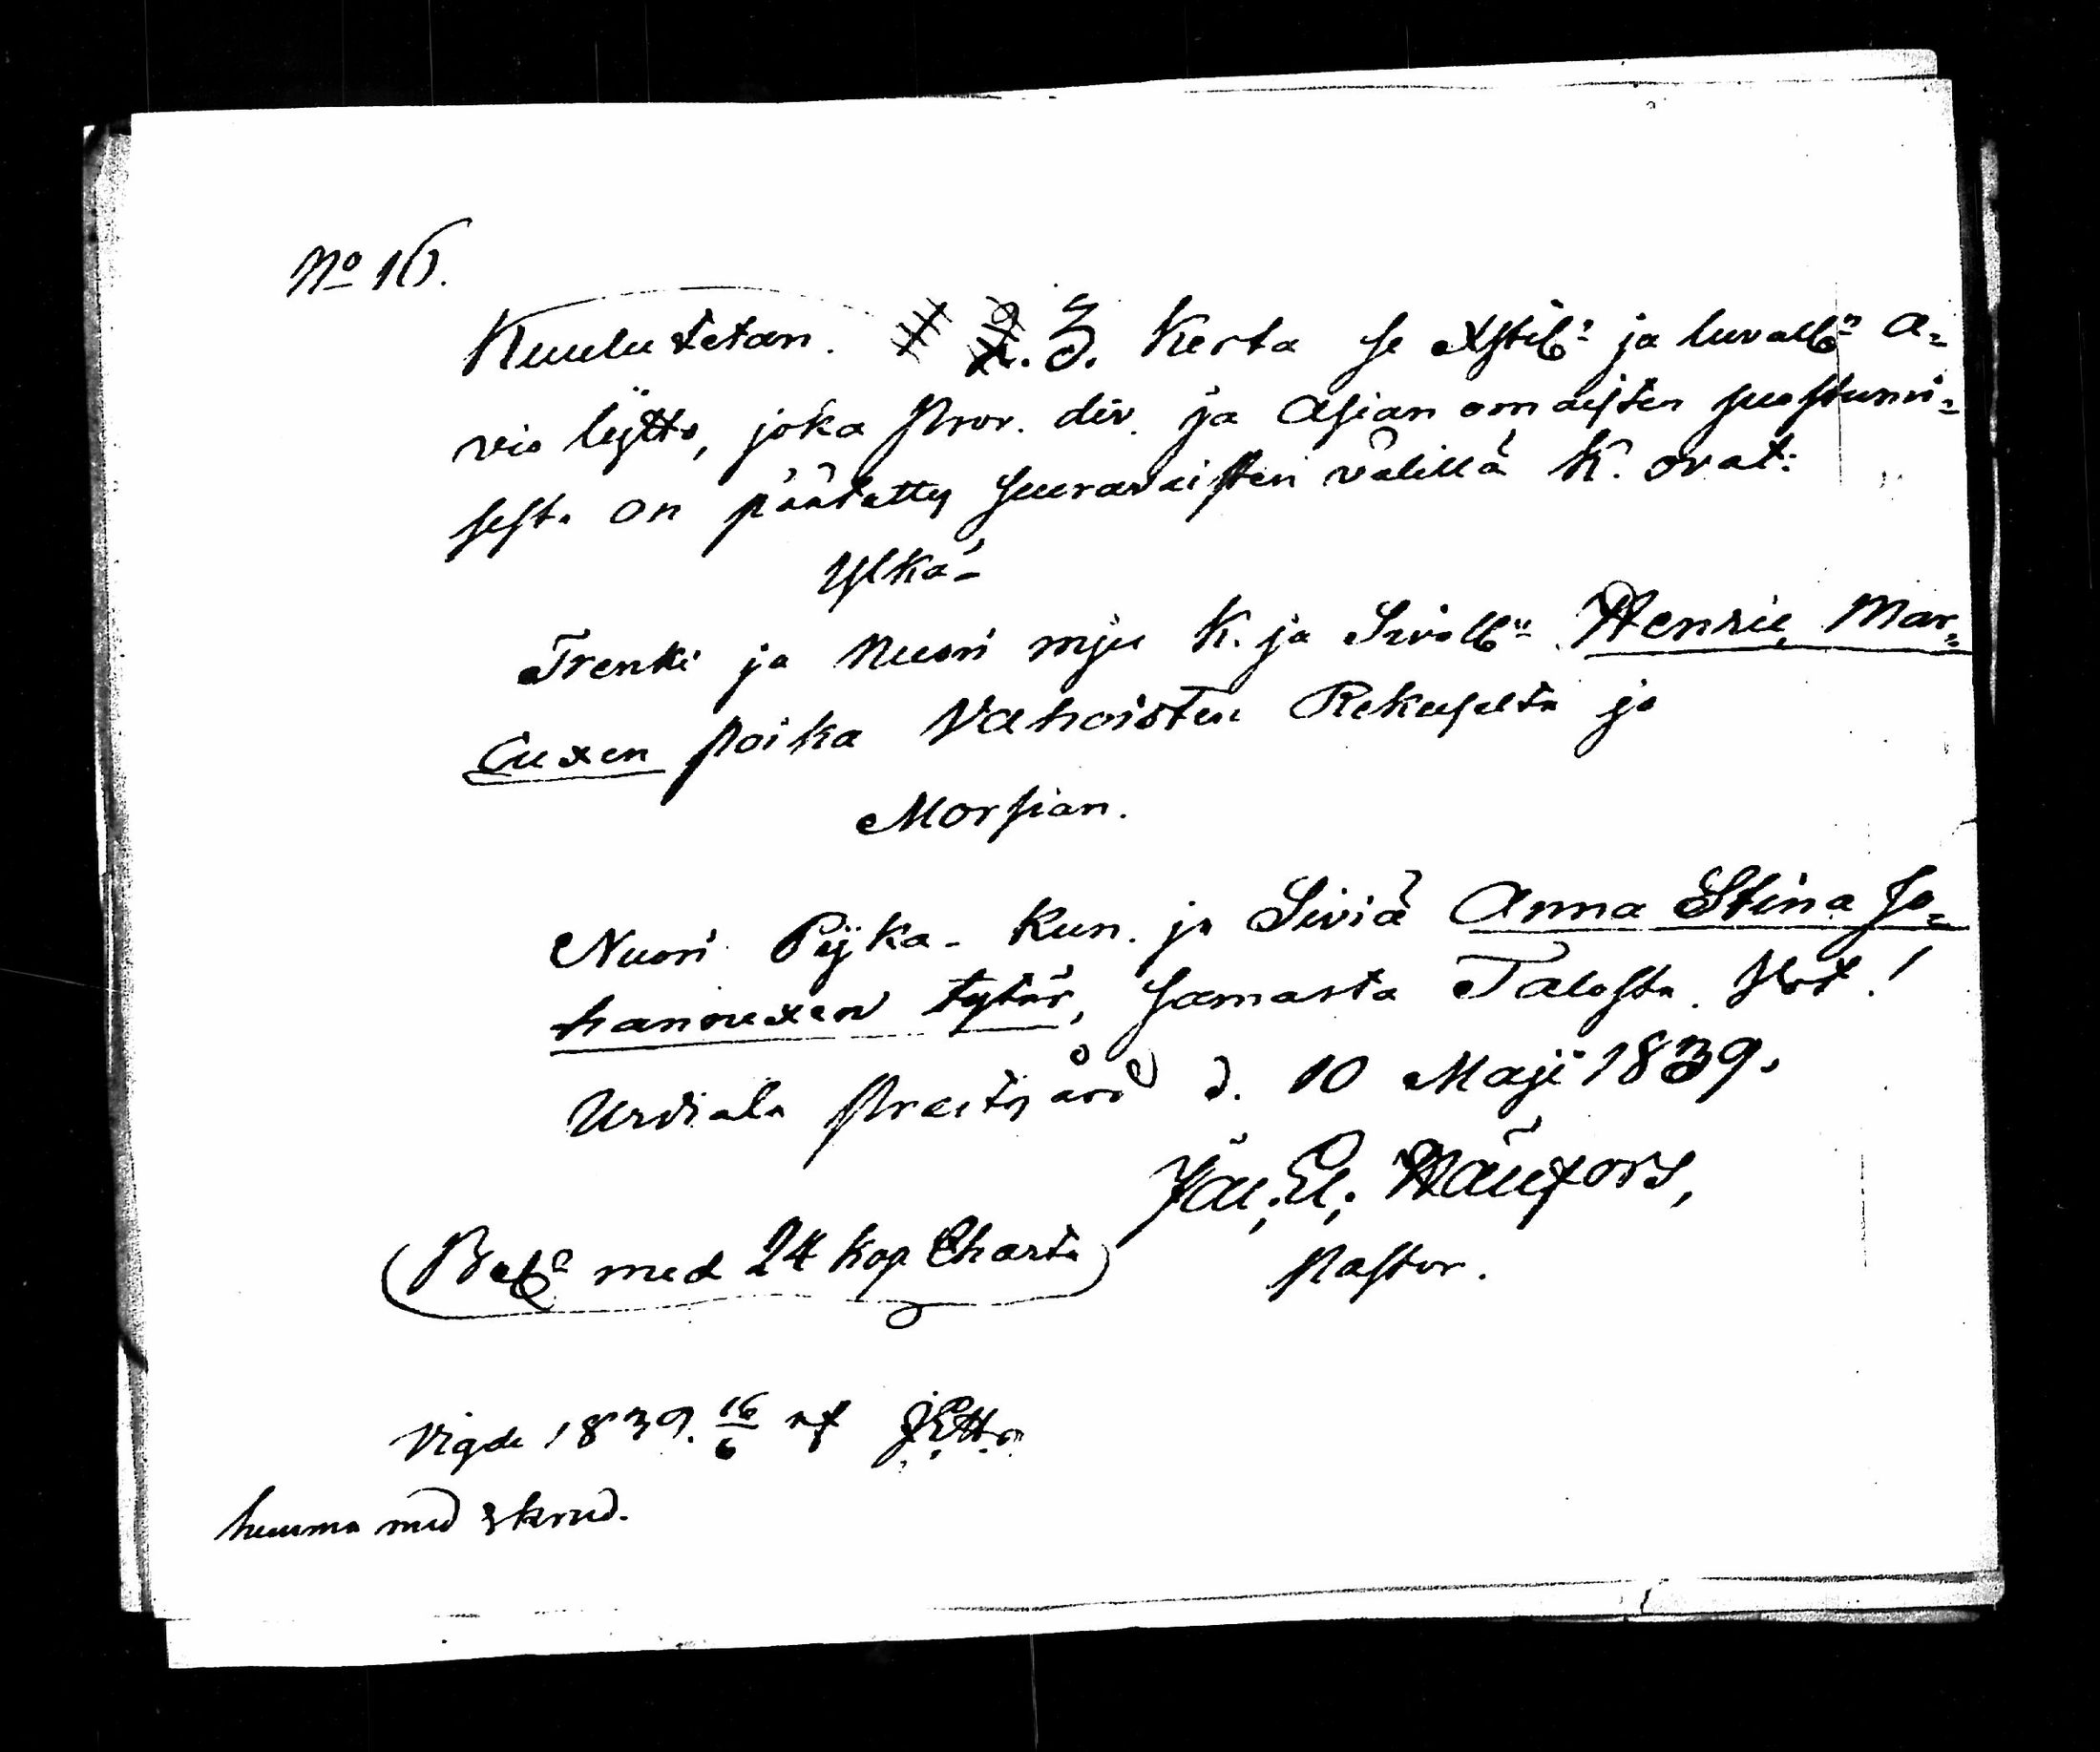 No 16.
Kuulutetan. 1. 2. 3. Kerta se Xstil:n ja luvall:n A=
vio liytto, joka Prov. div. ja Asian omaisten suostumi=
sesta on päätetty seuravaisten välillä K. ovat:
Ylkä-
Trenki ja Nuori mjes K. ja Sivoll:n Henric Mar=
cuxen poika Vahoisten Rekuselta ja
Morsian.
Nuori Pijka- Kun. ja Siviä Anna Stina Jo=
hannexen tytär, samasta Talosta. Vot!
Urdiala Prestgård d. 10 Maji 1839.
Pastor.
(Bel:d med 24 kop Charta)
Vigde 1839. 16/6 af